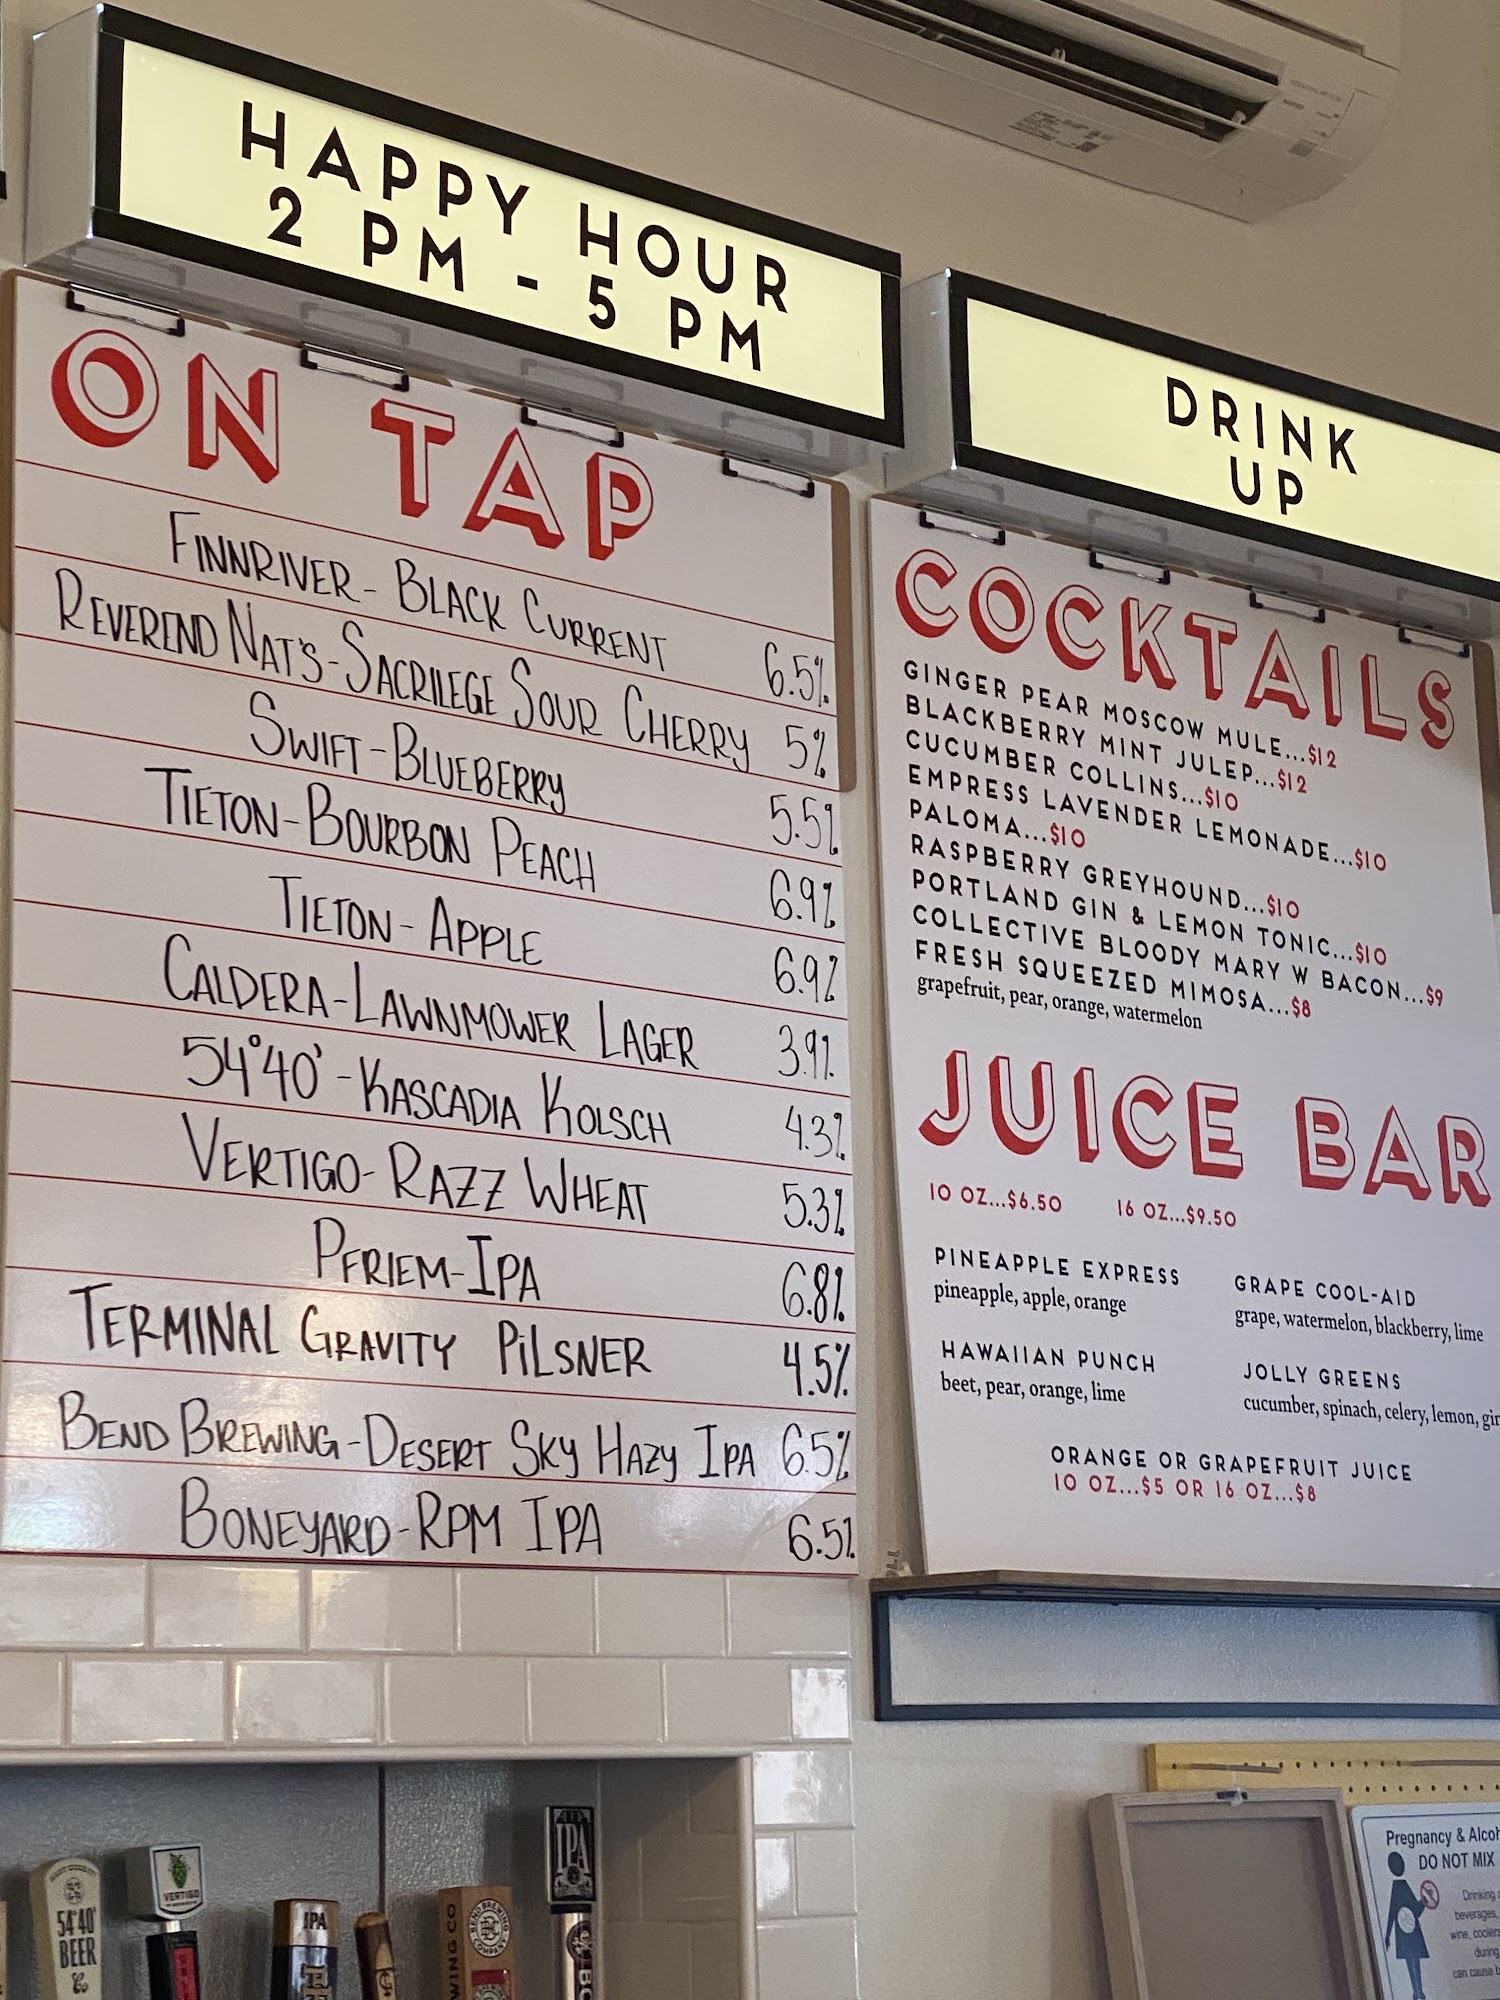 HAPPY HOUR
2 PM - 5 PM
ON TAP
FINNRIVER - BLACK CURRENT 6.5%
REVEREND NAT'S - SACRILEGE SOUR CHERRY 5%
SWIFT - BLUEBERRY 5.5%
TIETON - BOURBON PEACH 6.9%
TIETON - APPLE 6.9%
CALDERA - LAWNMOWER LAGER 3.9%
54°40' - KASCADIA KOLSCH 4.3%
VERTIGO - RAZZ WHEAT 5.3%
PFRIEM - IPA 6.8%
TERMINAL GRAVITY PILSNER 4.5%
BEND BREWING - DESERT SKY HAZY IPA 6.5%
BONEYARD - RPM IPA 6.5%
DRINK
UP
COCKTAILS
GINGER PEAR MOSCOW MULE...$12
BLACKBERRY MINT JULEP...$12
CUCUMBER COLLINS...$10
EMPRESS LAVENDER LEMONADE...$10
PALOMA...$10
RASPBERRY GREYHOUND...$10
PORTLAND GIN & LEMON TONIC...$10
COLLECTIVE BLOODY MARY W BACON...$9
FRESH SQUEEZED MIMOSA...$8
grapefruit, pear, orange, watermelon
JUICE BAR
10 OZ...$6.50 16 OZ...$9.50
PINEAPPLE EXPRESS
pineapple, apple, orange
GRAPE COOL-AID
grape, watermelon, blackberry, lime
HAWAIIAN PUNCH
beet, pear, orange, lime
JOLLY GREENS
cucumber, spinach, celery, lemon, gin
ORANGE OR GRAPEFRUIT JUICE
10 OZ...$5 OR 16 OZ...$8
54°40'
BEER
VERTIGO
IPA
WING CO
BEND BREWING
COMPANY
IPA
Pregnancy & Alcoh
DO NOT MIX
Drinking
beverages,
wine, coolers
during
can cause